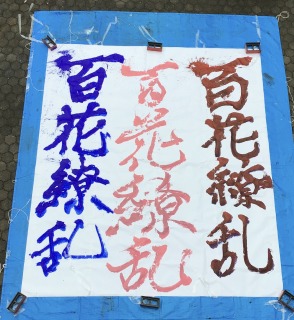 百花繚乱
百花繚乱
百花繚乱